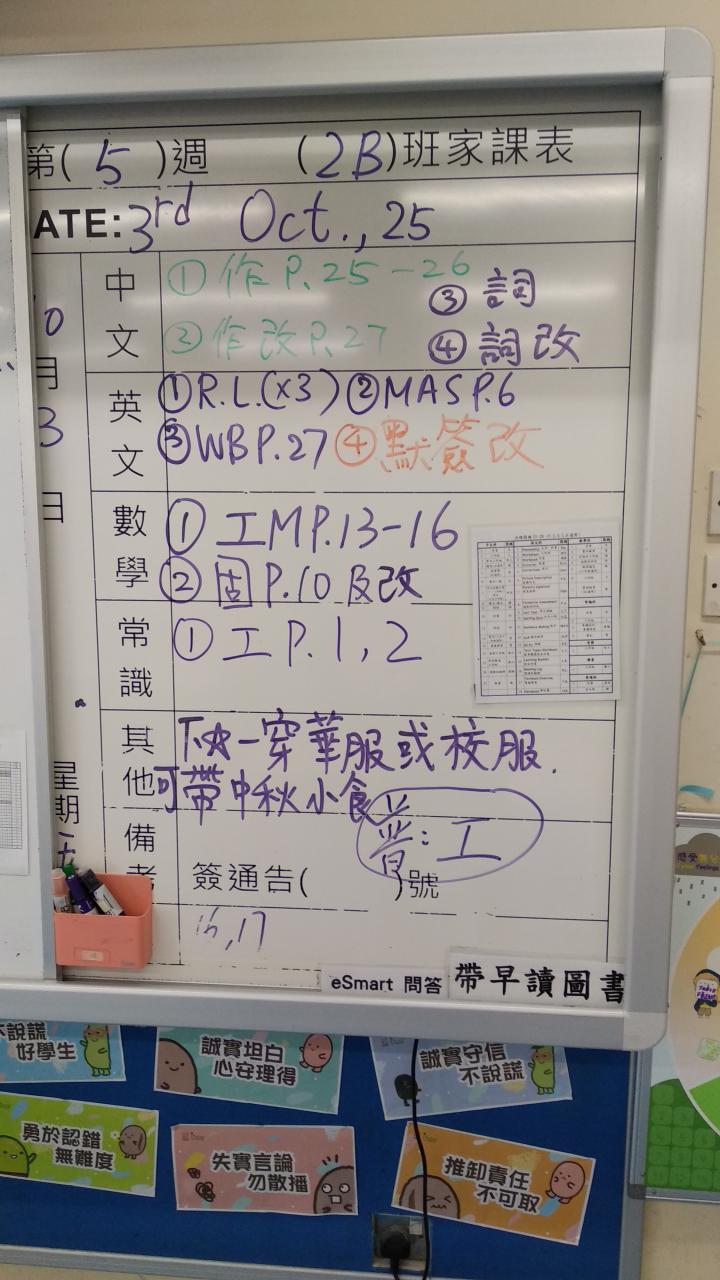 第(5)週 (2B)班家課表
ATE: 3rd Oct., 25
10
月
3
日
星期五
中文
①作P.25-26
③詞
②作改P.27
④詞改
英文
①R.L.(x3) ②MAS P.6
③WB P.27 ④默簽改
數學
①工M P.13-16
②固P.10及改
常識
①工P.1,2
其他
下☆一穿華服或校服.
可帶中秋小食
備考
普:工
簽通告( )號
16,17
eSmart 問答
帶早讀圖書
不說謊
好學生
誠實坦白
心安理得
誠實守信
不說謊
勇於認錯
無難度
失實言論
勿散播
推卸責任
不可取